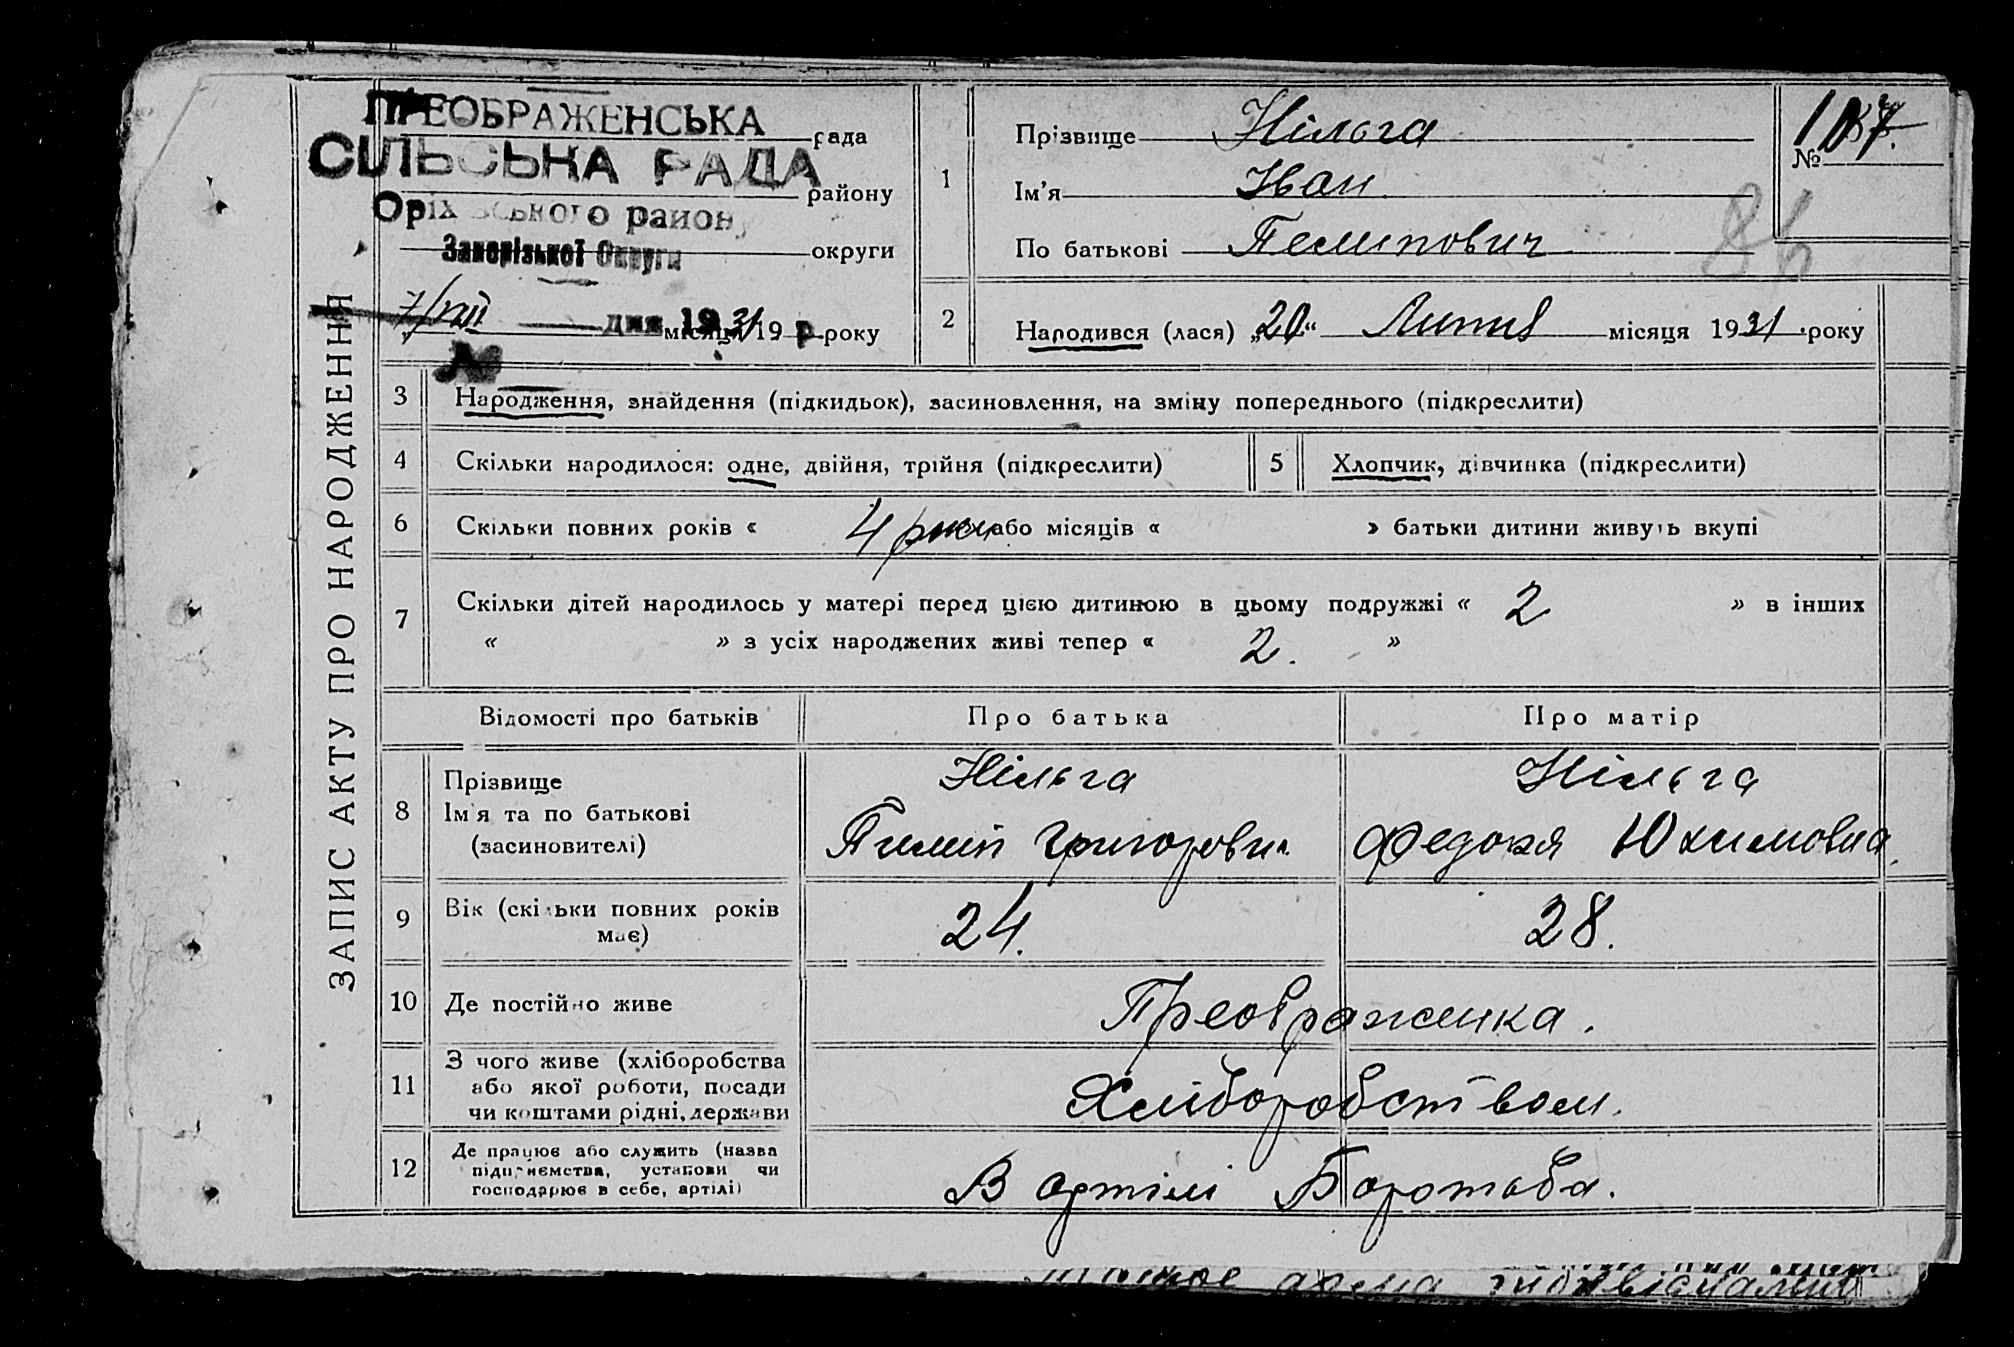 ПРЕОБРАЖЕНСЬКА рада
СІЛЬСЬКА РАДА
району
Оріхівського району
Запорізької Округи округи
7/VIII дня місяця 1931 р року
№
ЗАПИС АКТУ ПРО НАРОДЖЕННЯ
1
Прізвище Нільга
Ім'я Іван
По батькові Пилипович
№ 107.
86
2
Народився (лася) „20“ Липня місяця 1931 року
3
Народження, знайдення (підкидьок), засиновлення, на зміну попереднього (підкреслити)
4
Скільки народилося: одне, двійня, трійня (підкреслити)
5
Хлопчик, дівчинка (підкреслити)
6
Скільки повних років « 4 роки або місяців « » батьки дитини живуть вкупі
7
Скільки дітей народилось у матері перед цією дитиною в цьому подружжі « 2 » в інших
« » з усіх народжених живі тепер « 2. »
Відомості про батьків
Про батька
Про матір
8
Прізвище
Ім'я та по батькові
(засиновителі)
Нільга
Пилип Григорович
Нільга
Федося Юхимовна
9
Вік (скільки повних років
має)
24.
28.
10
Де постійно живе
Преображенка.
11
З чого живе (хліборобства
або якої роботи, посади
чи коштами рідні, держави
Хліборобством.
12
Де працює або служить (назва
підприємства, установи чи
господарює в себе, артілі)
В артілі Боротьба.